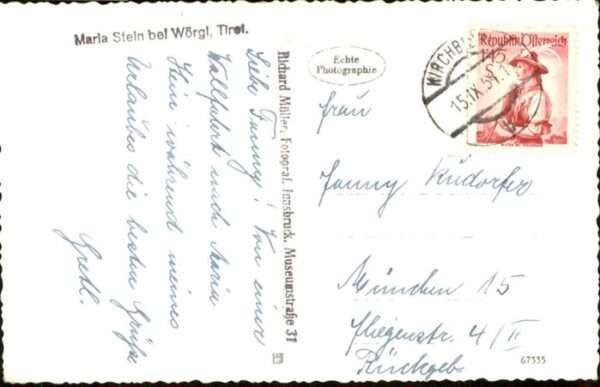 Maria Stein bei Wörgl, Tirol.
Liebe Fanny! Von einer
Wallfahrt nach Maria
Stein während meines
Urlaubs die besten Grüße
Gretl.
Richard Müller, Fotograf, Innsbruck, Museumstraße 37
Echte
Photographie
REPUBLIK ÖSTERREICH
1.45
15.IX.59
Frau
Fanny
München 15
Fliegenstr. 4/II
Rückgeb.
67335